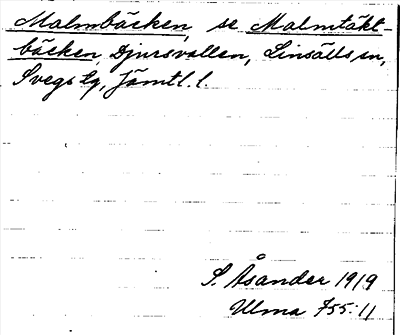 Malmbäcken, se Malmtäkt-
bäcken, Djursvallen, Linsälls sn,
Svegs tg, Jämtl. l.
S. Åsander 1919
Ulma 755:11